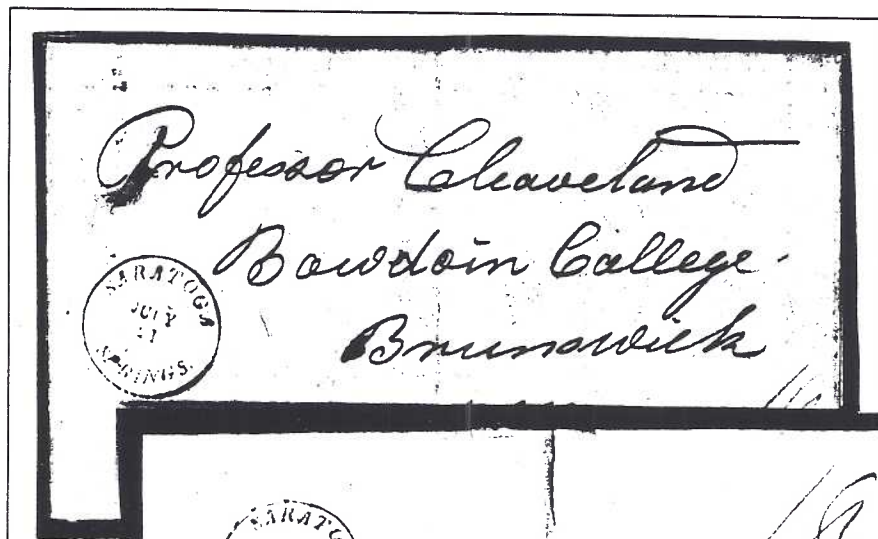 Professor Cleaveland
Bowdoin College.
Brunswick
SARATOGA
JULY
SPRINGS.